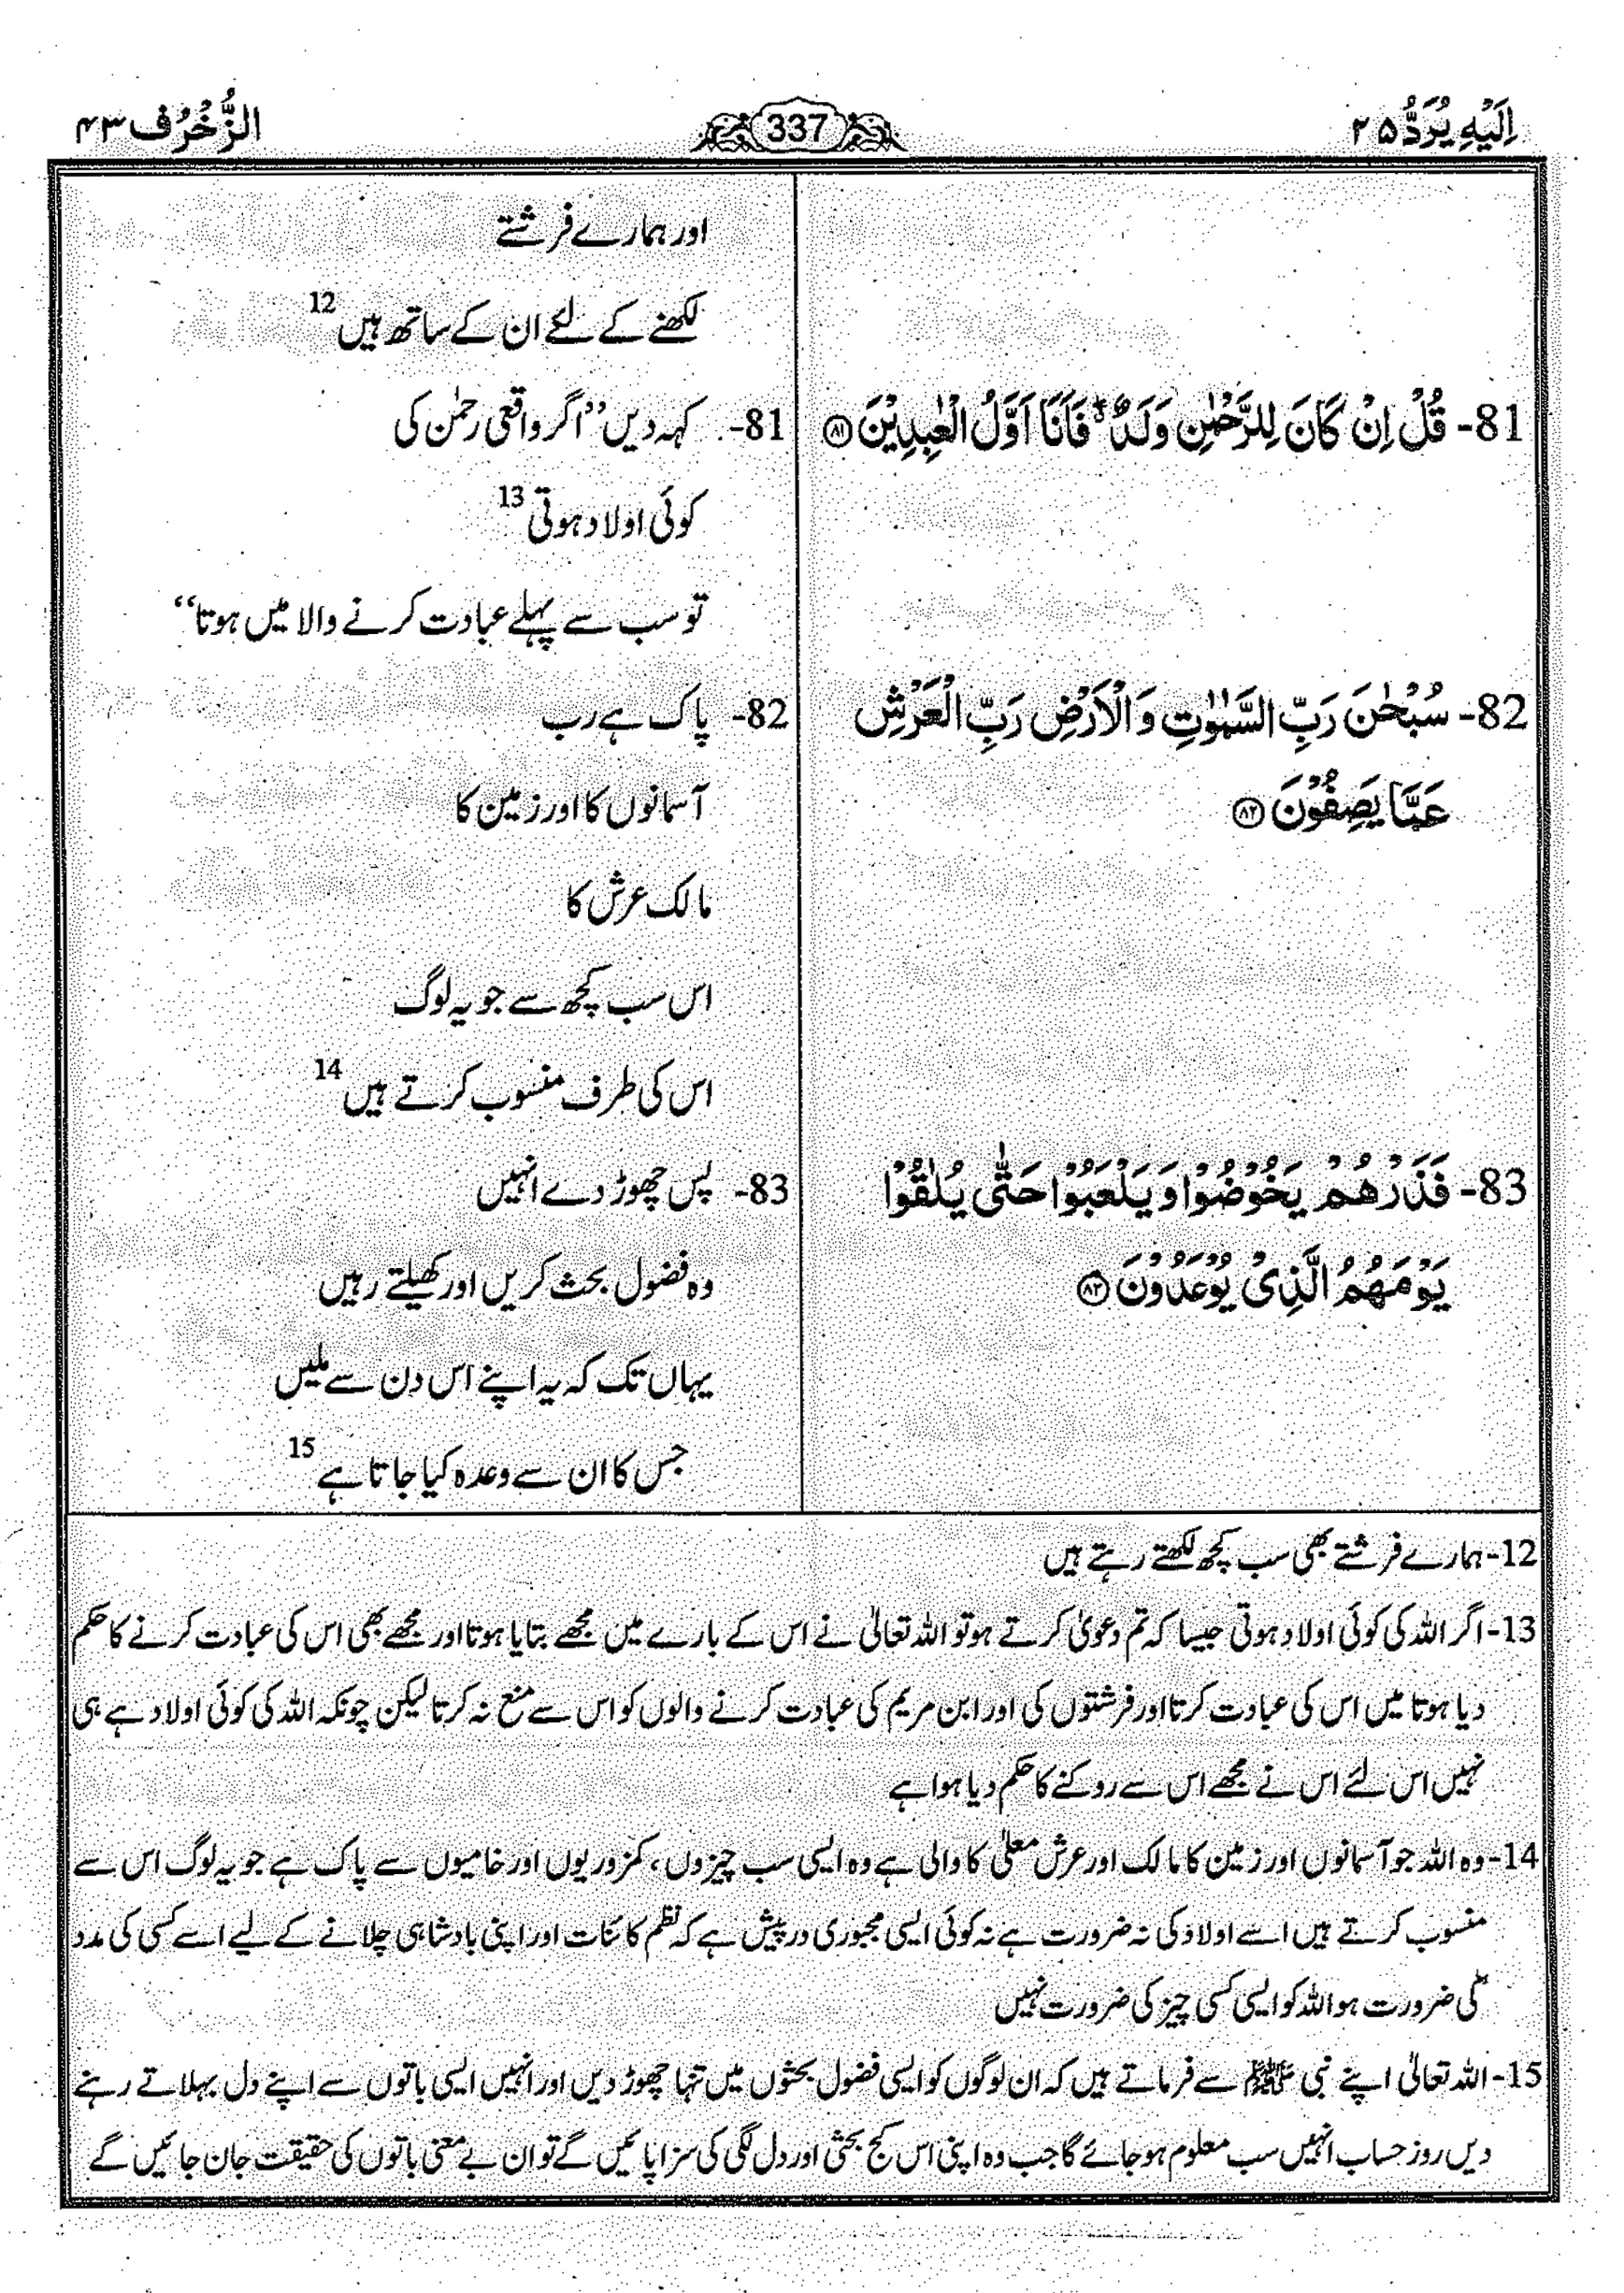 اِلَیْهِ یُرَدُّ ۲۵
337
الزُّخْرُف ۴۳
اور ہمارے فرشتے
لکھنے کے لئے ان کے ساتھ ہیں 12
81- قُلْ اِنْ كَانَ لِلرَّحْمٰنِ وَلَدٌ ۖ فَاَنَا اَوَّلُ الْعٰبِدِیْنَ ﴿۸۱﴾
81- کہہ دیں ’’اگر واقعی رحمٰن کی
کوئی اولاد ہوتی 13
تو سب سے پہلے عبادت کرنے والا میں ہوتا‘‘
82- سُبْحٰنَ رَبِّ السَّمٰوٰتِ وَ الْاَرْضِ رَبِّ الْعَرْشِ
عَمَّا یَصِفُوْنَ ﴿۸۲﴾
82- پاک ہے رب
آسمانوں کا اور زمین کا
مالک عرش کا
اس سب کچھ سے جو یہ لوگ
اس کی طرف منسوب کرتے ہیں 14
83- فَذَرْهُمْ یَخُوْضُوْا وَ یَلْعَبُوْا حَتّٰى یُلٰقُوْا
یَوْمَهُمُ الَّذِیْ یُوْعَدُوْنَ ﴿۸۳﴾
83- پس چھوڑ دے انہیں
وہ فضول بحث کریں اور کھیلتے رہیں
یہاں تک کہ یہ اپنے اس دن سے ملیں
جس کا ان سے وعدہ کیا جاتا ہے 15
12- ہمارے فرشتے بھی سب کچھ لکھتے رہتے ہیں
13- اگر اللہ کی کوئی اولاد ہوتی جیسا کہ تم دعویٰ کرتے ہو تو اللہ تعالیٰ نے اس کے بارے میں مجھے بتایا ہوتا اور مجھے بھی اس کی عبادت کرنے کا حکم
دیا ہوتا میں اس کی عبادت کرتا اور فرشتوں کی اور ابن مریم کی عبادت کرنے والوں کو اس سے منع نہ کرتا لیکن چونکہ اللہ کی کوئی اولاد ہے ہی
نہیں اس لئے اس نے مجھے اس سے روکنے کا حکم دیا ہوا ہے
14- وہ اللہ جو آسمانوں اور زمین کا مالک اور عرش معلیٰ کا والی ہے وہ ایسی سب چیزوں، کمزوریوں اور خامیوں سے پاک ہے جو یہ لوگ اس سے
منسوب کرتے ہیں اسے اولاد کی نہ ضرورت ہے نہ کوئی ایسی مجبوری درپیش ہے کہ نظم کائنات اور اپنی بادشاہی چلانے کے لیے اسے کسی کی مدد
کی ضرورت ہو اللہ کو ایسی کسی چیز کی ضرورت نہیں
15- اللہ تعالیٰ اپنے نبی ﷺ سے فرماتے ہیں کہ ان لوگوں کو ایسی فضول بحثوں میں تنہا چھوڑ دیں اور انہیں ایسی باتوں سے اپنے دل بہلاتے رہنے
دیں روز حساب انہیں سب معلوم ہو جائے گا جب وہ اپنی اس کج بحثی اور دل لگی کی سزا پائیں گے تو ان بے معنی باتوں کی حقیقت جان جائیں گے